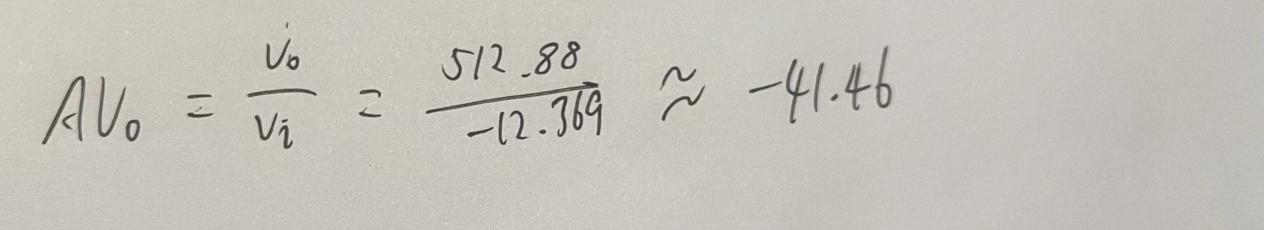 AV₀ = V₀/Vi = 512.88/-12.369 ≈ -41.46